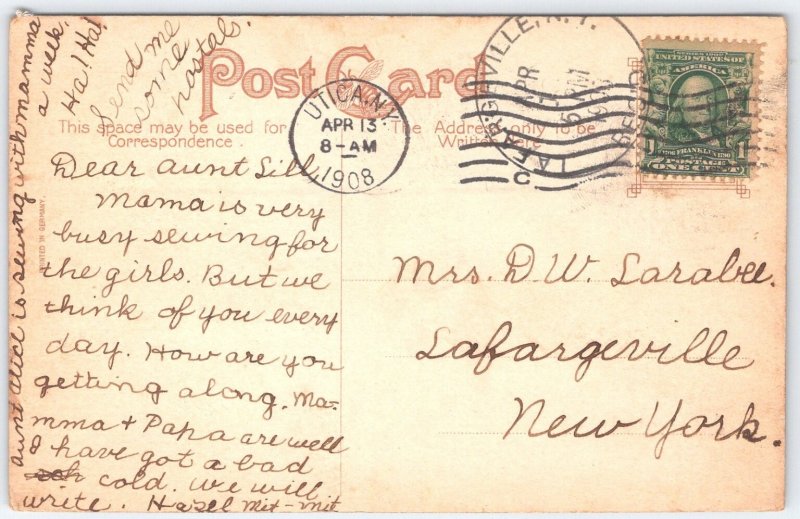 Post Card
This space may be used for
Correspondence.
The Address only to be
Written here
PRINTED IN GERMANY.
UTICA, N.Y.
APR 13
8-AM
1908
LAFARGEVILLE, N.Y.
APR
REC'D
UNITED STATES OF
AMERICA
1706 FRANKLIN 1790
POSTAGE
1 ONE CENT 1
Dear aunt Lill
Mama is very
busy sewing for
the girls. But we
think of you every
day. How are you
getting along. Ma-
mma + Papa are well
I have got a bad
cold. we will
write. Hazel Mit-mit
aunt alice is sewing with mamma
a week.
Ha! Ha!
Send me
some
postals.
Mrs. D W. Larabee.
Lafargeville
New York.